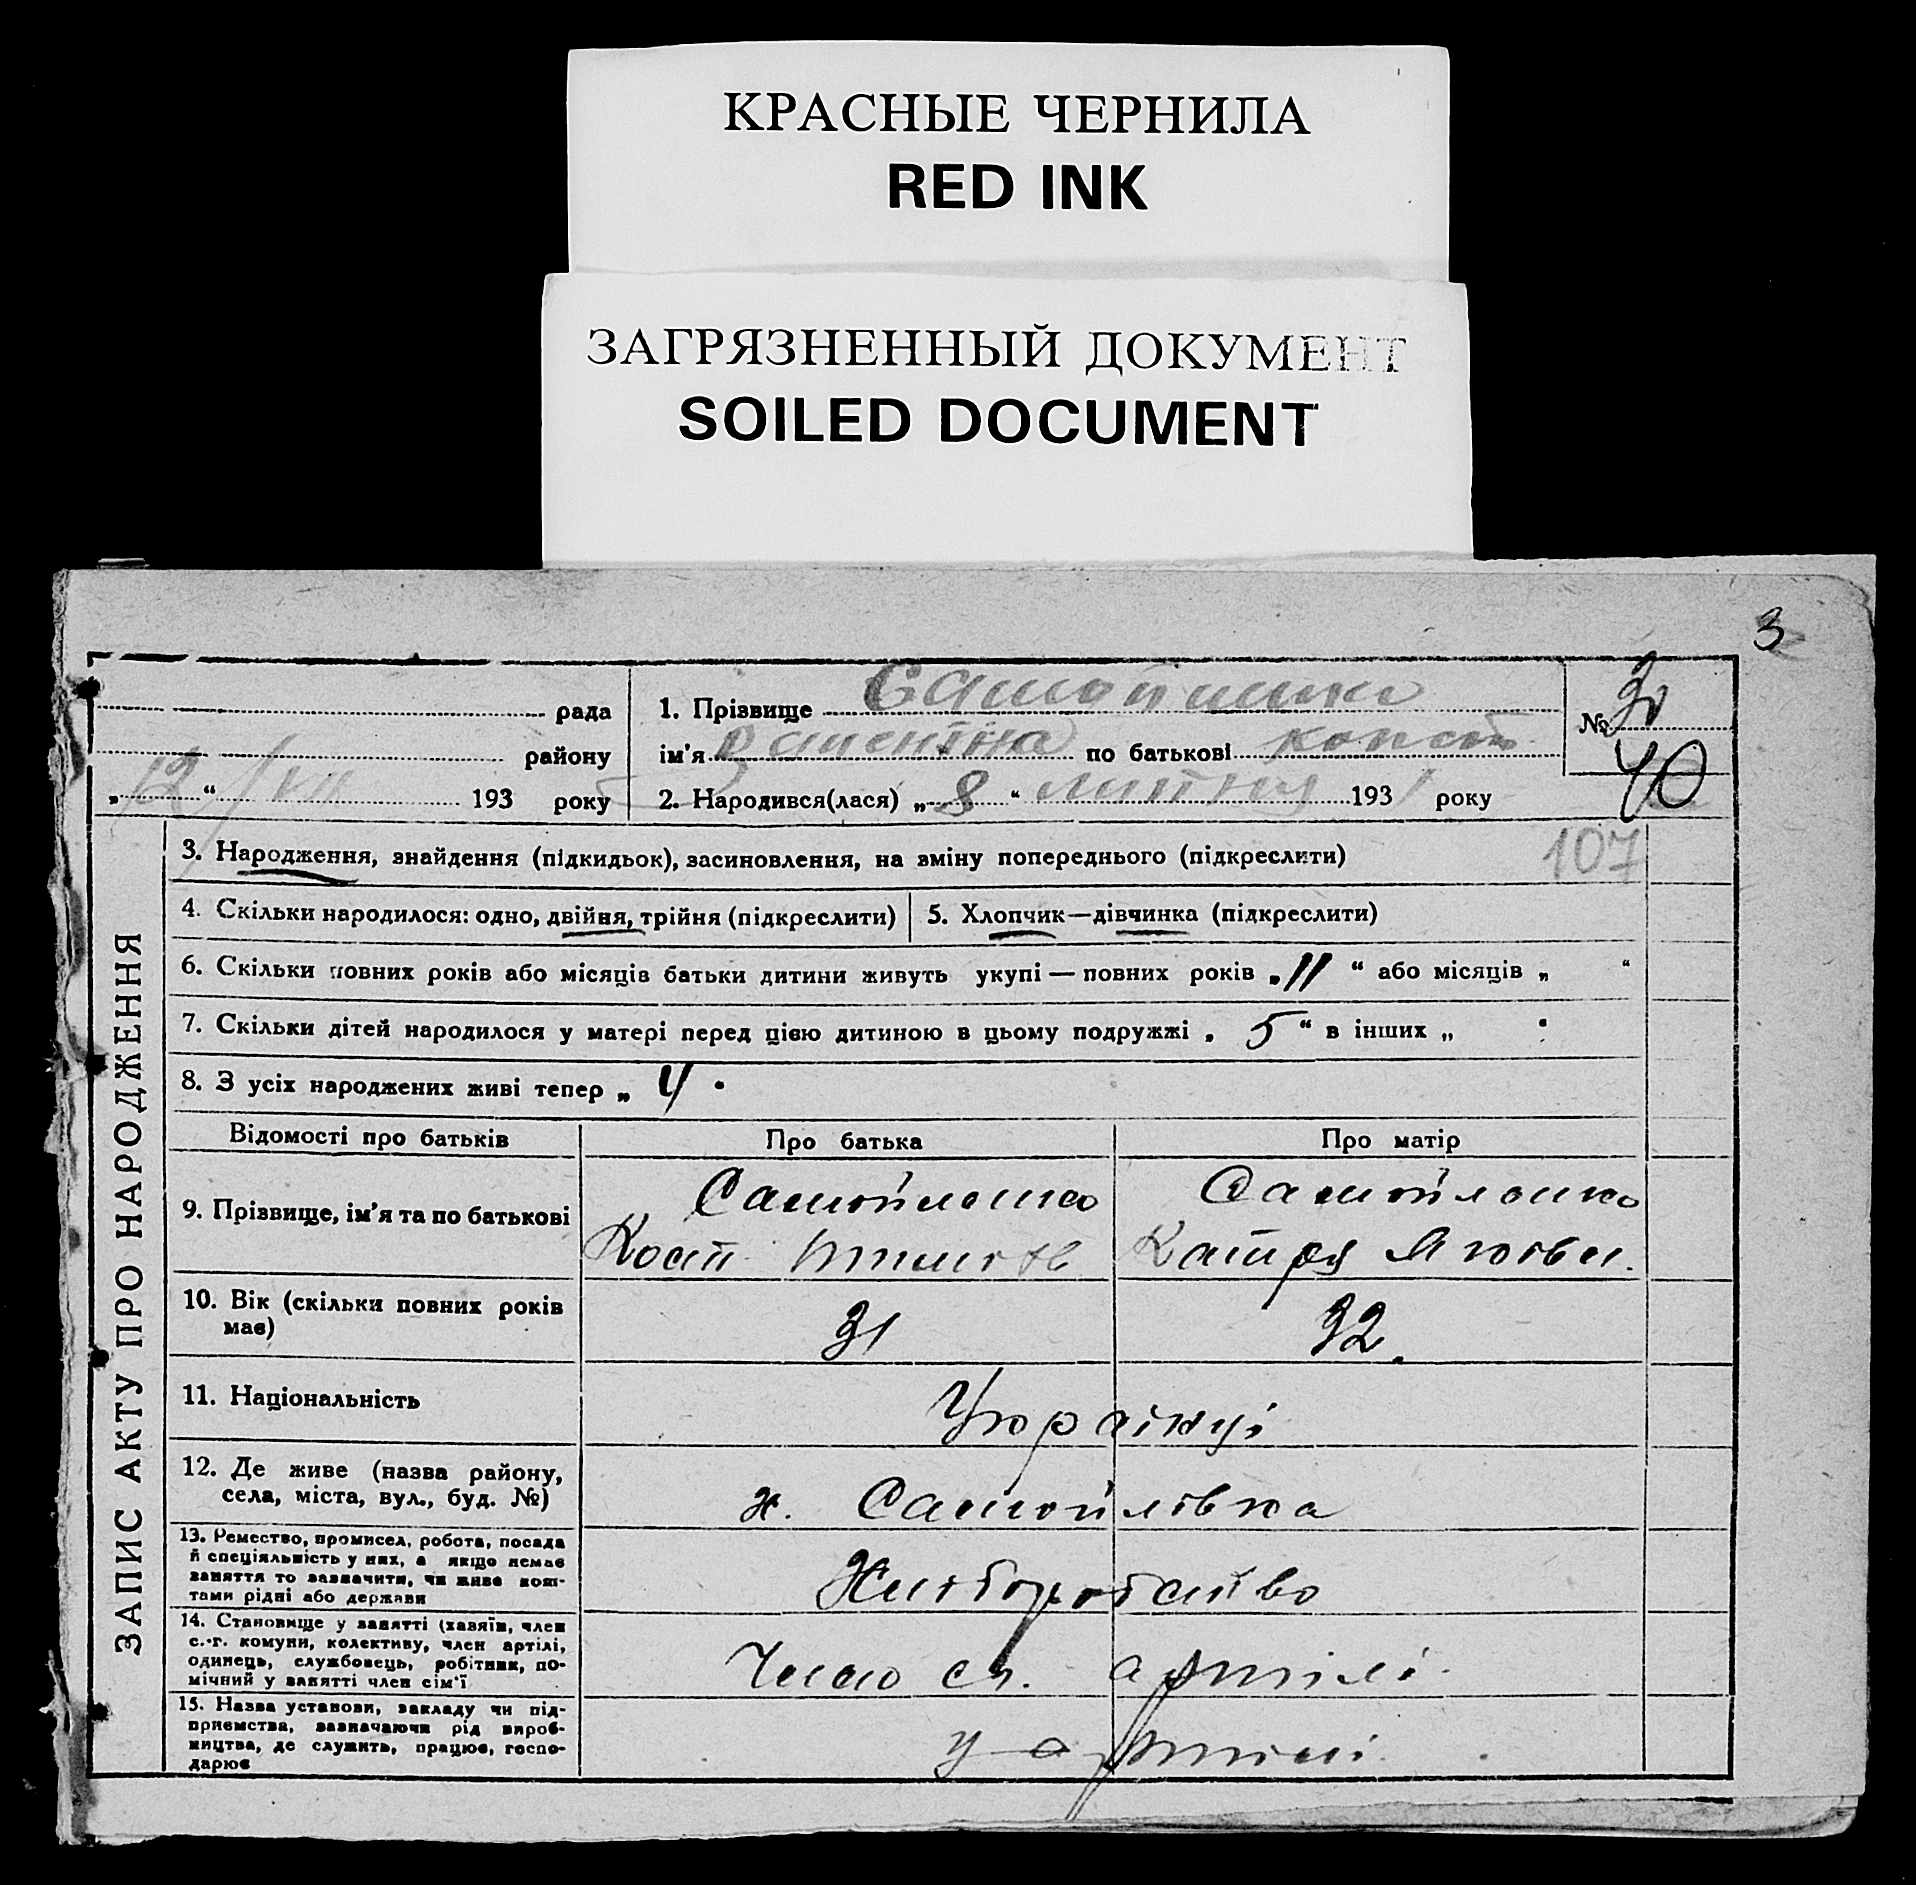 КРАСНЫЕ ЧЕРНИЛА
RED INK
ЗАГРЯЗНЕННЫЙ ДОКУМЕНТ
SOILED DOCUMENT
3
рада
1. Прізвище Самойленко
№ 30
району
ім'я Валентина по батькові Конст
40
„12/VII“ 193 року
2. Народився(лася) „8“ липня 193 року
107
ЗАПИС АКТУ ПРО НАРОДЖЕННЯ
3. Народження, знайдення (підкидьок), засиновлення, на зміну попереднього (підкреслити)
4. Скільки народилося: одно, двійня, трійня (підкреслити)
5. Хлопчик—дівчинка (підкреслити)
6. Скільки повних років або місяців батьки дитини живуть укупі — повних років „11“ або місяців „ “
7. Скільки дітей народилося у матері перед цією дитиною в цьому подружжі „5“ в інших „ “
8. З усіх народжених живі тепер „4“
Відомості про батьків
Про батька
Про матір
9. Прізвище, ім'я та по батькові
Самойленко
Кост
Самойленко
Катря Яковл.
10. Вік (скільки повних років має)
31
32.
11. Національність
Українці
12. Де живе (назва району,
села, міста, вул., буд. №)
х. Самойлівка
13. Ремество, промисел, робота, посада
й спеціяльність у них, а якщо немає
заняття то зазначити, чи живе кош-
тами рідні або держави
Хліборобство
14. Становище у занятті (хазяїн, член
с.-г. комуни, колективу, член артілі,
одинець, службовець, робітник, по-
мічний у занятті член сім'ї
Член сг. артілі
15. Назва установи, закладу чи під-
приємства, зазначаючи рід вироб-
ництва, де служить, працює, госпо-
дарює
у артілі